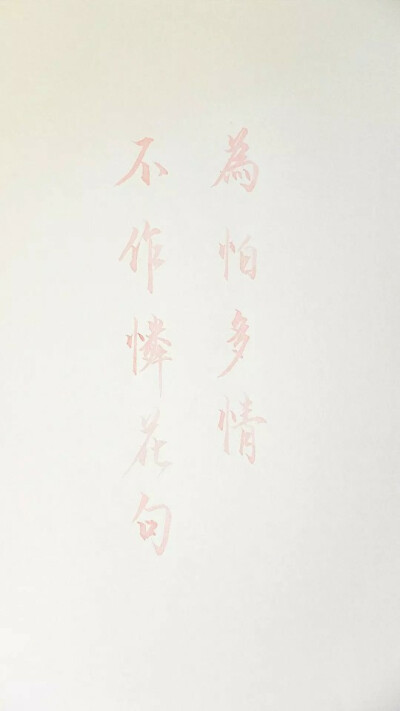 為怕多情
不作憐花句